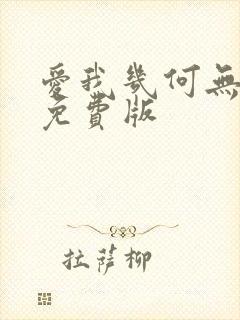 愛我幾何無
免費版
拉薩柳